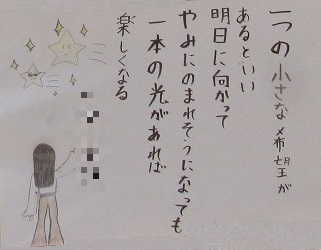 一つの小さな希望が
あるといい
明日に向かって
やみにのまれそうになっても
一本の光があれば
楽しくなる